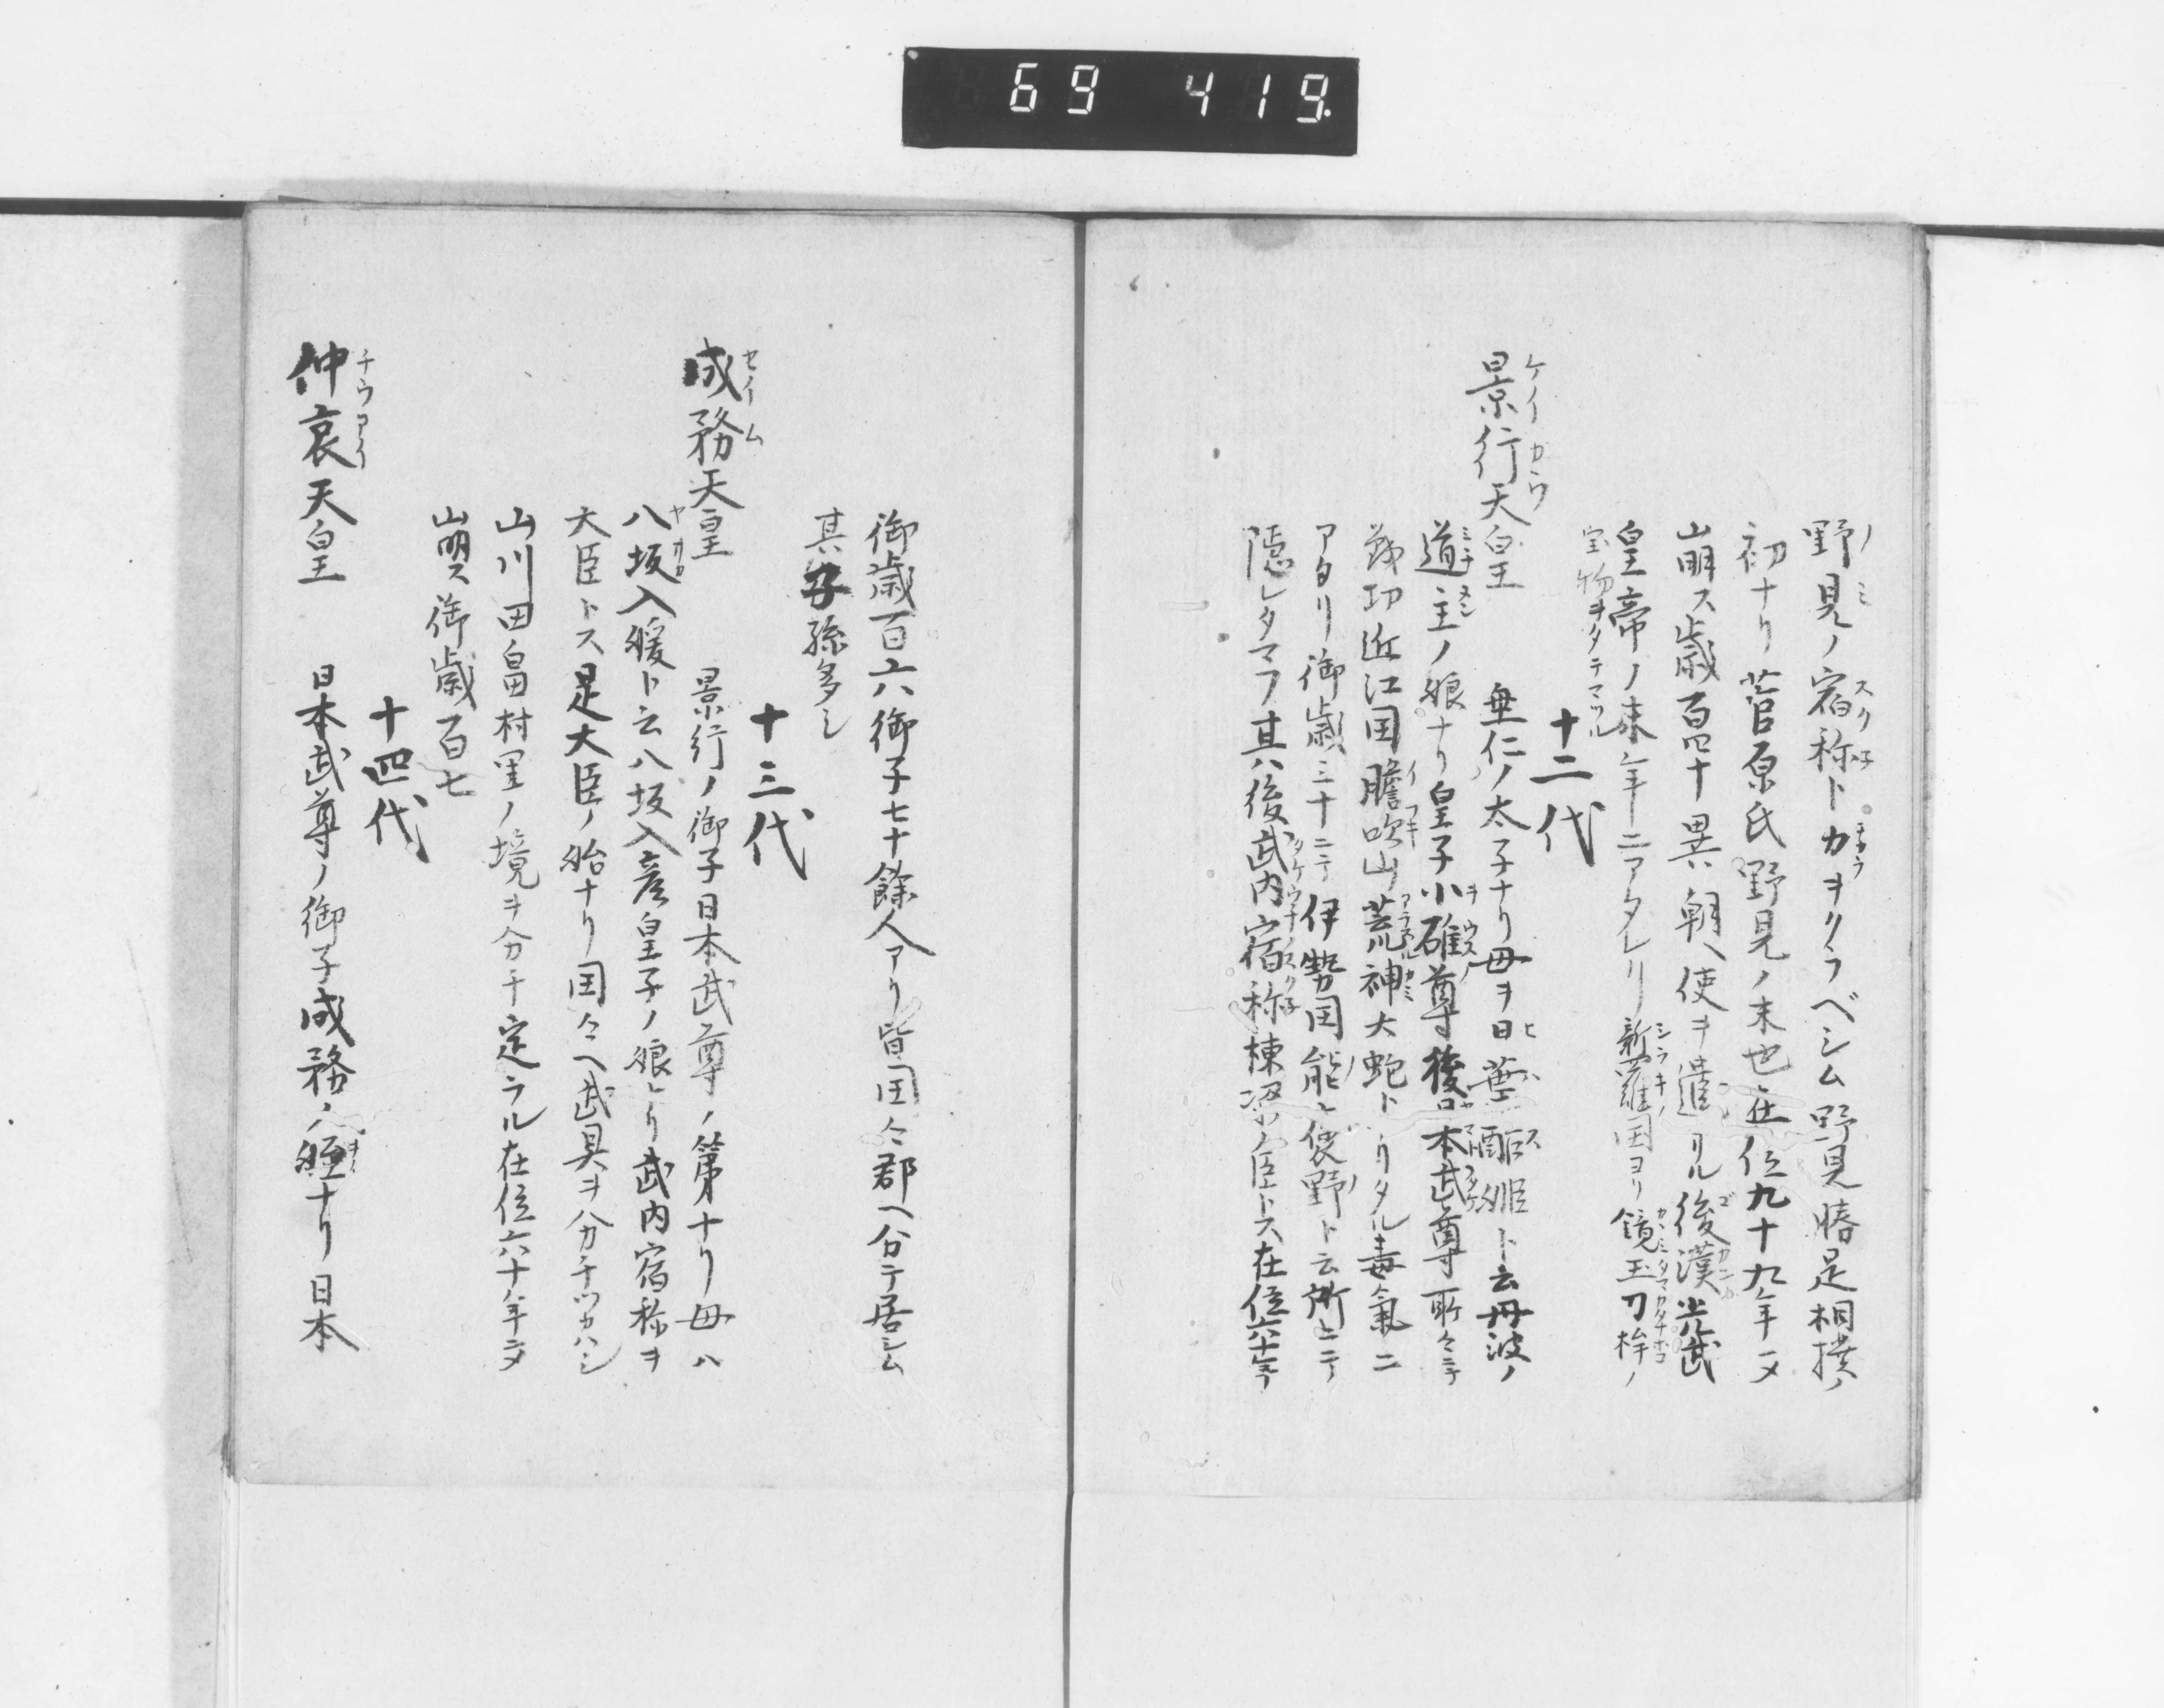 69 419.
野見ノ宿祢ト力ヲクラベシム野見勝是相撲ノ
初ナリ菅原氏野見ノ末也在位九十九年ニメ
崩ス歳百四十異朝ヘ使ヲ遣リル後漢光武
皇帝ノ末年ニアタレリ新羅国ヨリ鏡玉刀桙ノ
宝物ヲタテマツル
十二代
景行天皇 垂仁ノ太子ナリ母ヲ日葉酢姫ト云丹波ノ
道主ノ娘ナリ皇子小碓尊後日本武尊所々ニテ
戦功近江国膽吹山荒神大蛇トリタル毒氣ニ
アタリ御歳三十ニテ伊勢国能褒野ト云所ニテ
隠レタマフ其後武内宿祢棟梁ノ臣トス在位六十年
御歳百六御子七十餘人アリ皆国々郡ヘ分テ居シム
其子孫多シ
十三代
成務天皇 景行ノ御子日本武尊ノ第ナリ母ハ
八坂入媛ト云八坂入彦皇子ノ娘ナリ武内宿祢ヲ
大臣トス是大臣ノ始ナリ国々ヘ武具ヲ分チツカハシ
山川田畠村里ノ境ヲ分チ定ラル在位六十年ニメ
崩ス御歳百七
十四代
仲哀天皇 日本武尊ノ御子成務ノ姪ナリ日本